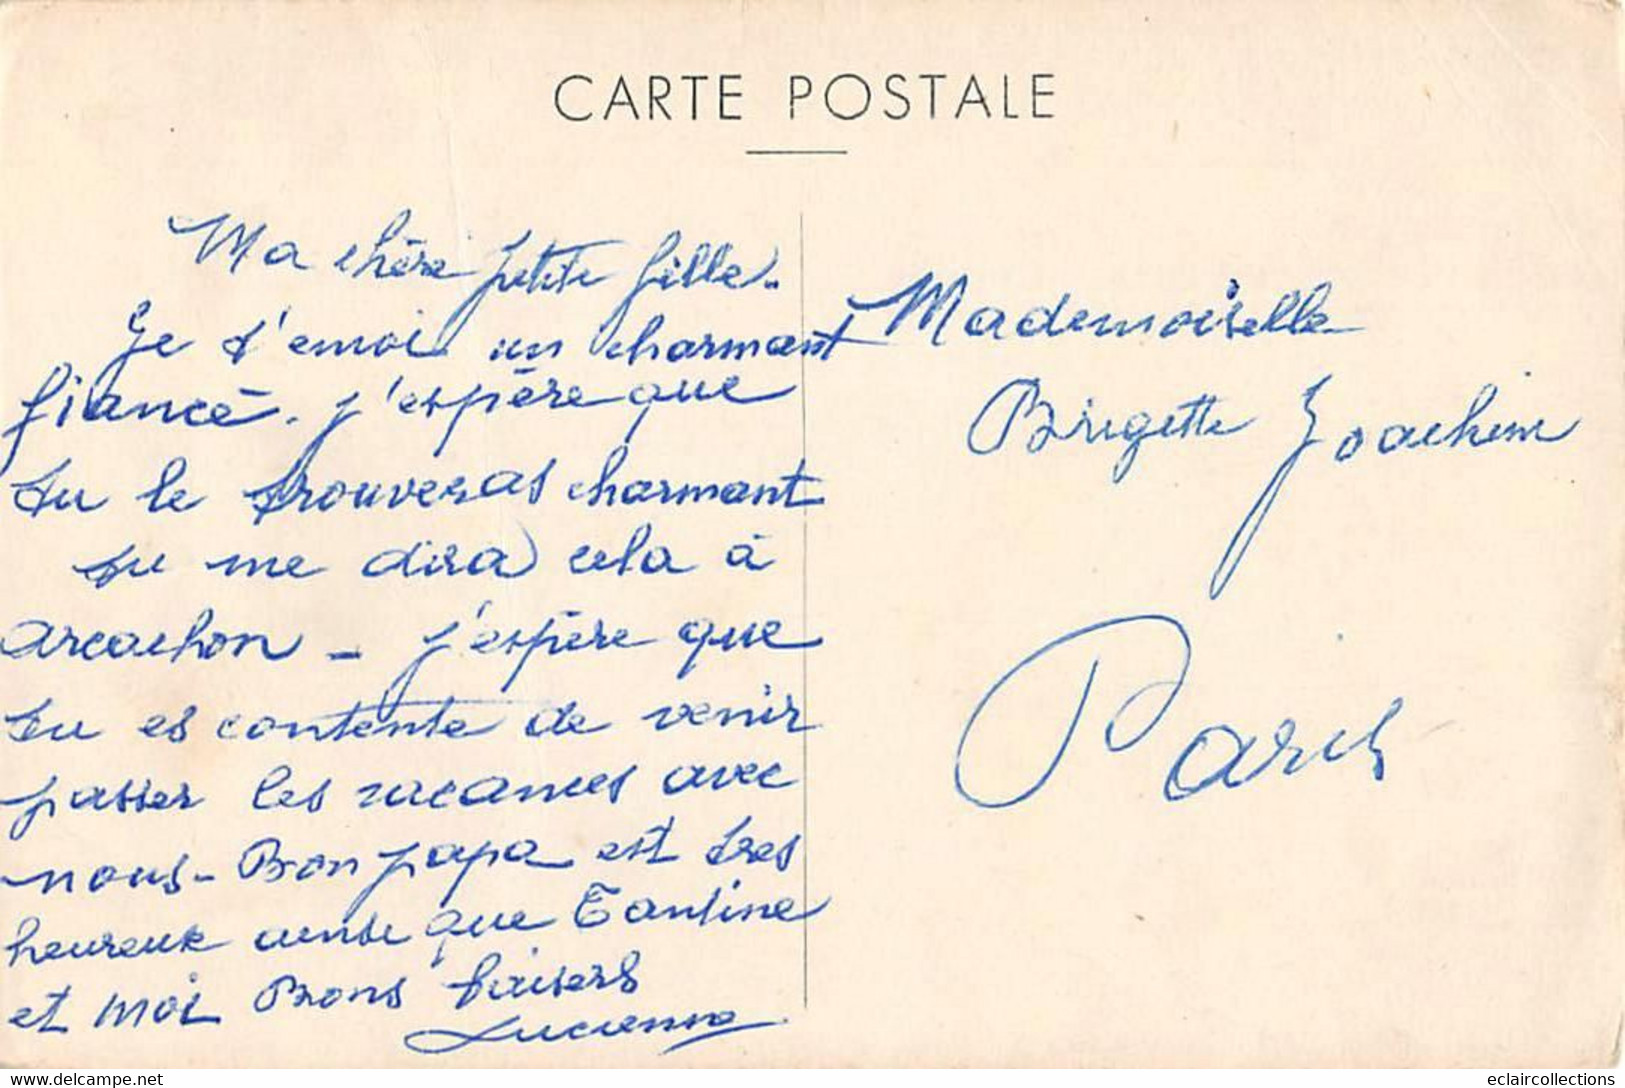 CARTE POSTALE
Ma chère petite fille.
Je t'envoi un charmant
fiancé. j'espère que
tu le trouveras charmant
tu me dira cela à
arcachon - j'espère que
tu es contente de venir
passer les vacances avec
nous - Bon papa est tres
heureux ainsi que Tantine
et moi Bons baisers
Lucienne
Mademoiselle
Brigette Joachim
Paris
www.delcampe.net
eclaircollections